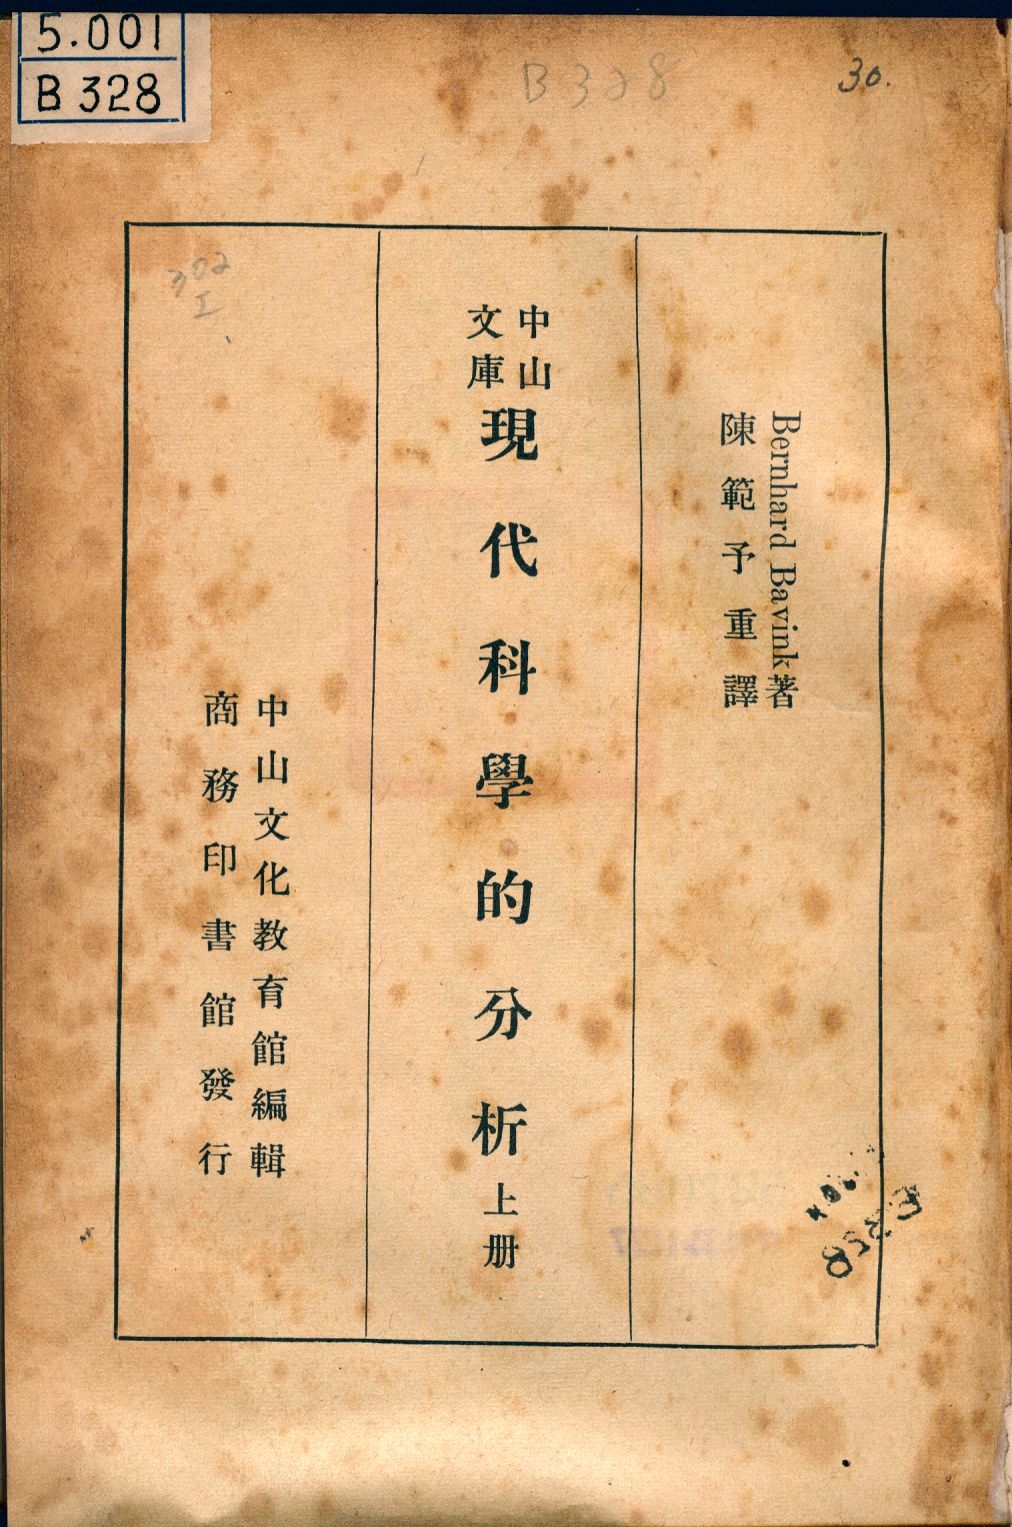 5.001
B 328
B 328
30.
302
I
Bernhard Bavink著
陳範予重譯
中山
文庫
現代科學的分析上册
中山文化教育館編輯
商務印書館發行